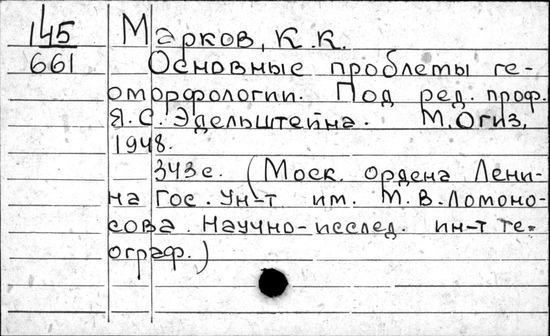 145
661
Марков, К.К.
Основные проблемы ге-
оморфологии. Под ред. проф.
Я.С. Эдельштейна. М. Огиз,
1948.
343 с. (Моск. ордена Лени-
на Гос. Ун-т им. М.В. Ломоно-
сова. Научно-исслед. ин-т ге-
ограф.)